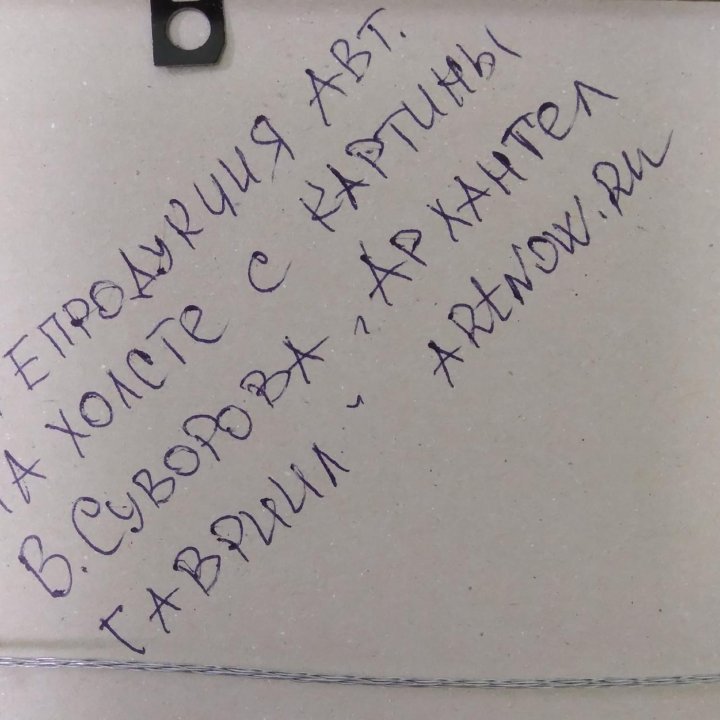 ЕПРОДУКЦИЯ АВТ.
НА ХОЛСТЕ С КАРТИНЫ
В. СУВОРОВА „АРХАНГЕЛ
ГАВРИИЛ" ARTNOW.RU